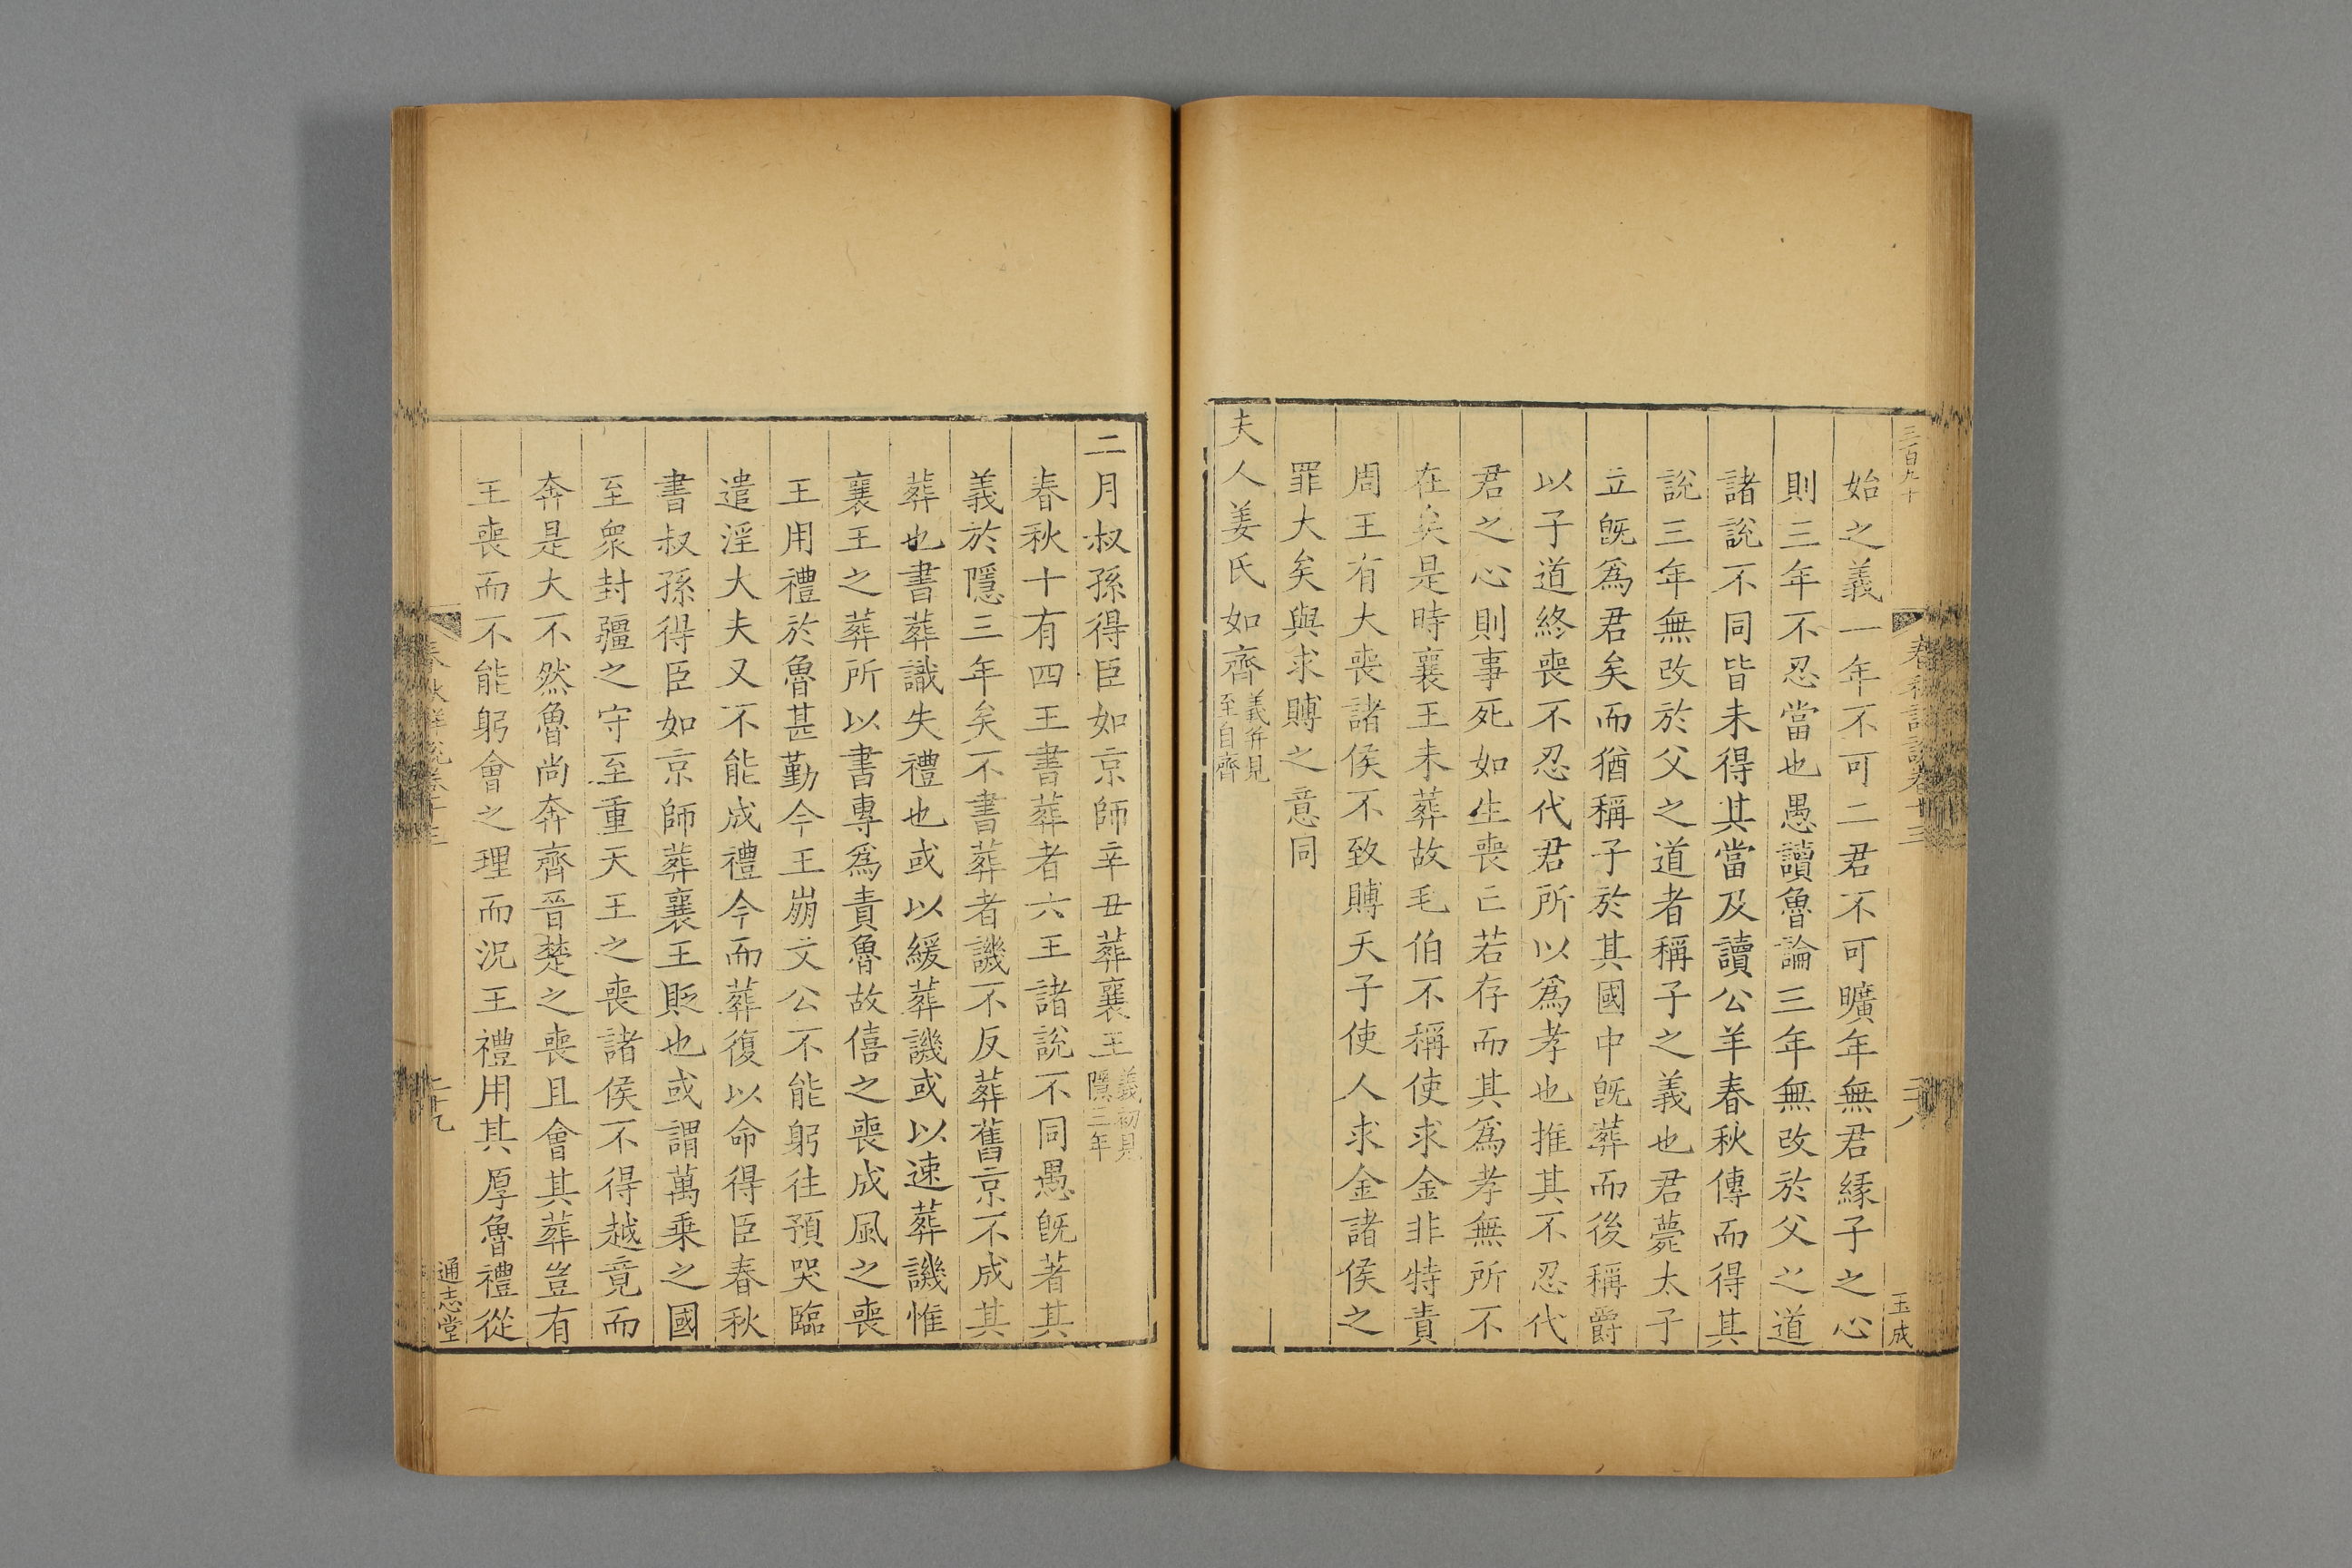 三百九十
春秋詳說卷十三
二十八
玉成
始之義一年不可二君不可曠年無君縁子之心
則三年不忍當也愚讀魯論三年無改於父之道
諸說不同皆未得其當及讀公羊春秋傳而得其
說三年無改於父之道者稱子之義也君薨太子
立旣爲君矣而猶稱子於其國中旣葬而後稱爵
以子道終喪不忍代君所以爲孝也推其不忍代
君之心則事死如生喪亡若存而其爲孝無所不
在矣是時襄王未葬故毛伯不稱使求金非特責
周王有大喪諸侯不致賻天子使人求金諸侯之
罪大矣與求賻之意同
夫人姜氏如齊義并見至自齊
二月叔孫得臣如京師辛丑葬襄王義初見隱三年
春秋十有四王書葬者六王諸說不同愚旣著其
義於隱三年矣不書葬者譏不反葬舊京不成其
葬也書葬識失禮也或以緩葬譏或以速葬譏惟
襄王之葬所以書專爲責魯故僖之喪成風之喪
王用禮於魯甚勤今王崩文公不能躬往預哭臨
遣淫大夫又不能成禮今而葬復以命得臣春秋
書叔孫得臣如京師葬襄王貶也或謂萬乗之國
至衆封疆之守至重天王之喪諸侯不得越竟而
奔是大不然魯尚奔齊晉楚之喪且會其葬豈有
王喪而不能躬會之理而況王禮用其厚魯禮從
春秋詳說卷十三
二十九
通志堂